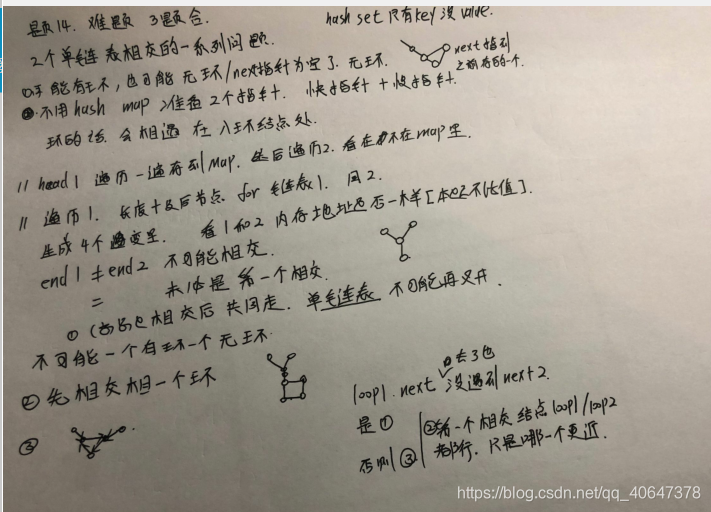 题14. 难题 3题合. hash set 只有key没 value.
2个单链表相交的一系列问题.
①可能有环,也可能无环/next指针为空了. 无环. next指到之前存的一个.
②.不用hash map >准备2个指针. 快指针+慢指针.
环的话. 会相遇 在入环结点处.
// head1 遍历一遍存到Map. 然后遍历2. 看在不在map里.
// 遍历1. 长度+及后节点 for 单链表1. 同2.
生成4个变量. 看1和2内存地址是否一样[本题不比值].
end1≠end2 不可能相交.
= 未必是第一个相交.
① 相交后 共同走. 单链表 不可能再叉开.
不可能一个有环一个无环.
② 先相交相一个环
③
①去3色
loop1. next 没遇到next2.
是① ②第一个相交结点loop1/loop2
否则③ 都行. 只是哪一个更近.
https://blog.csdn.net/qq_40647378